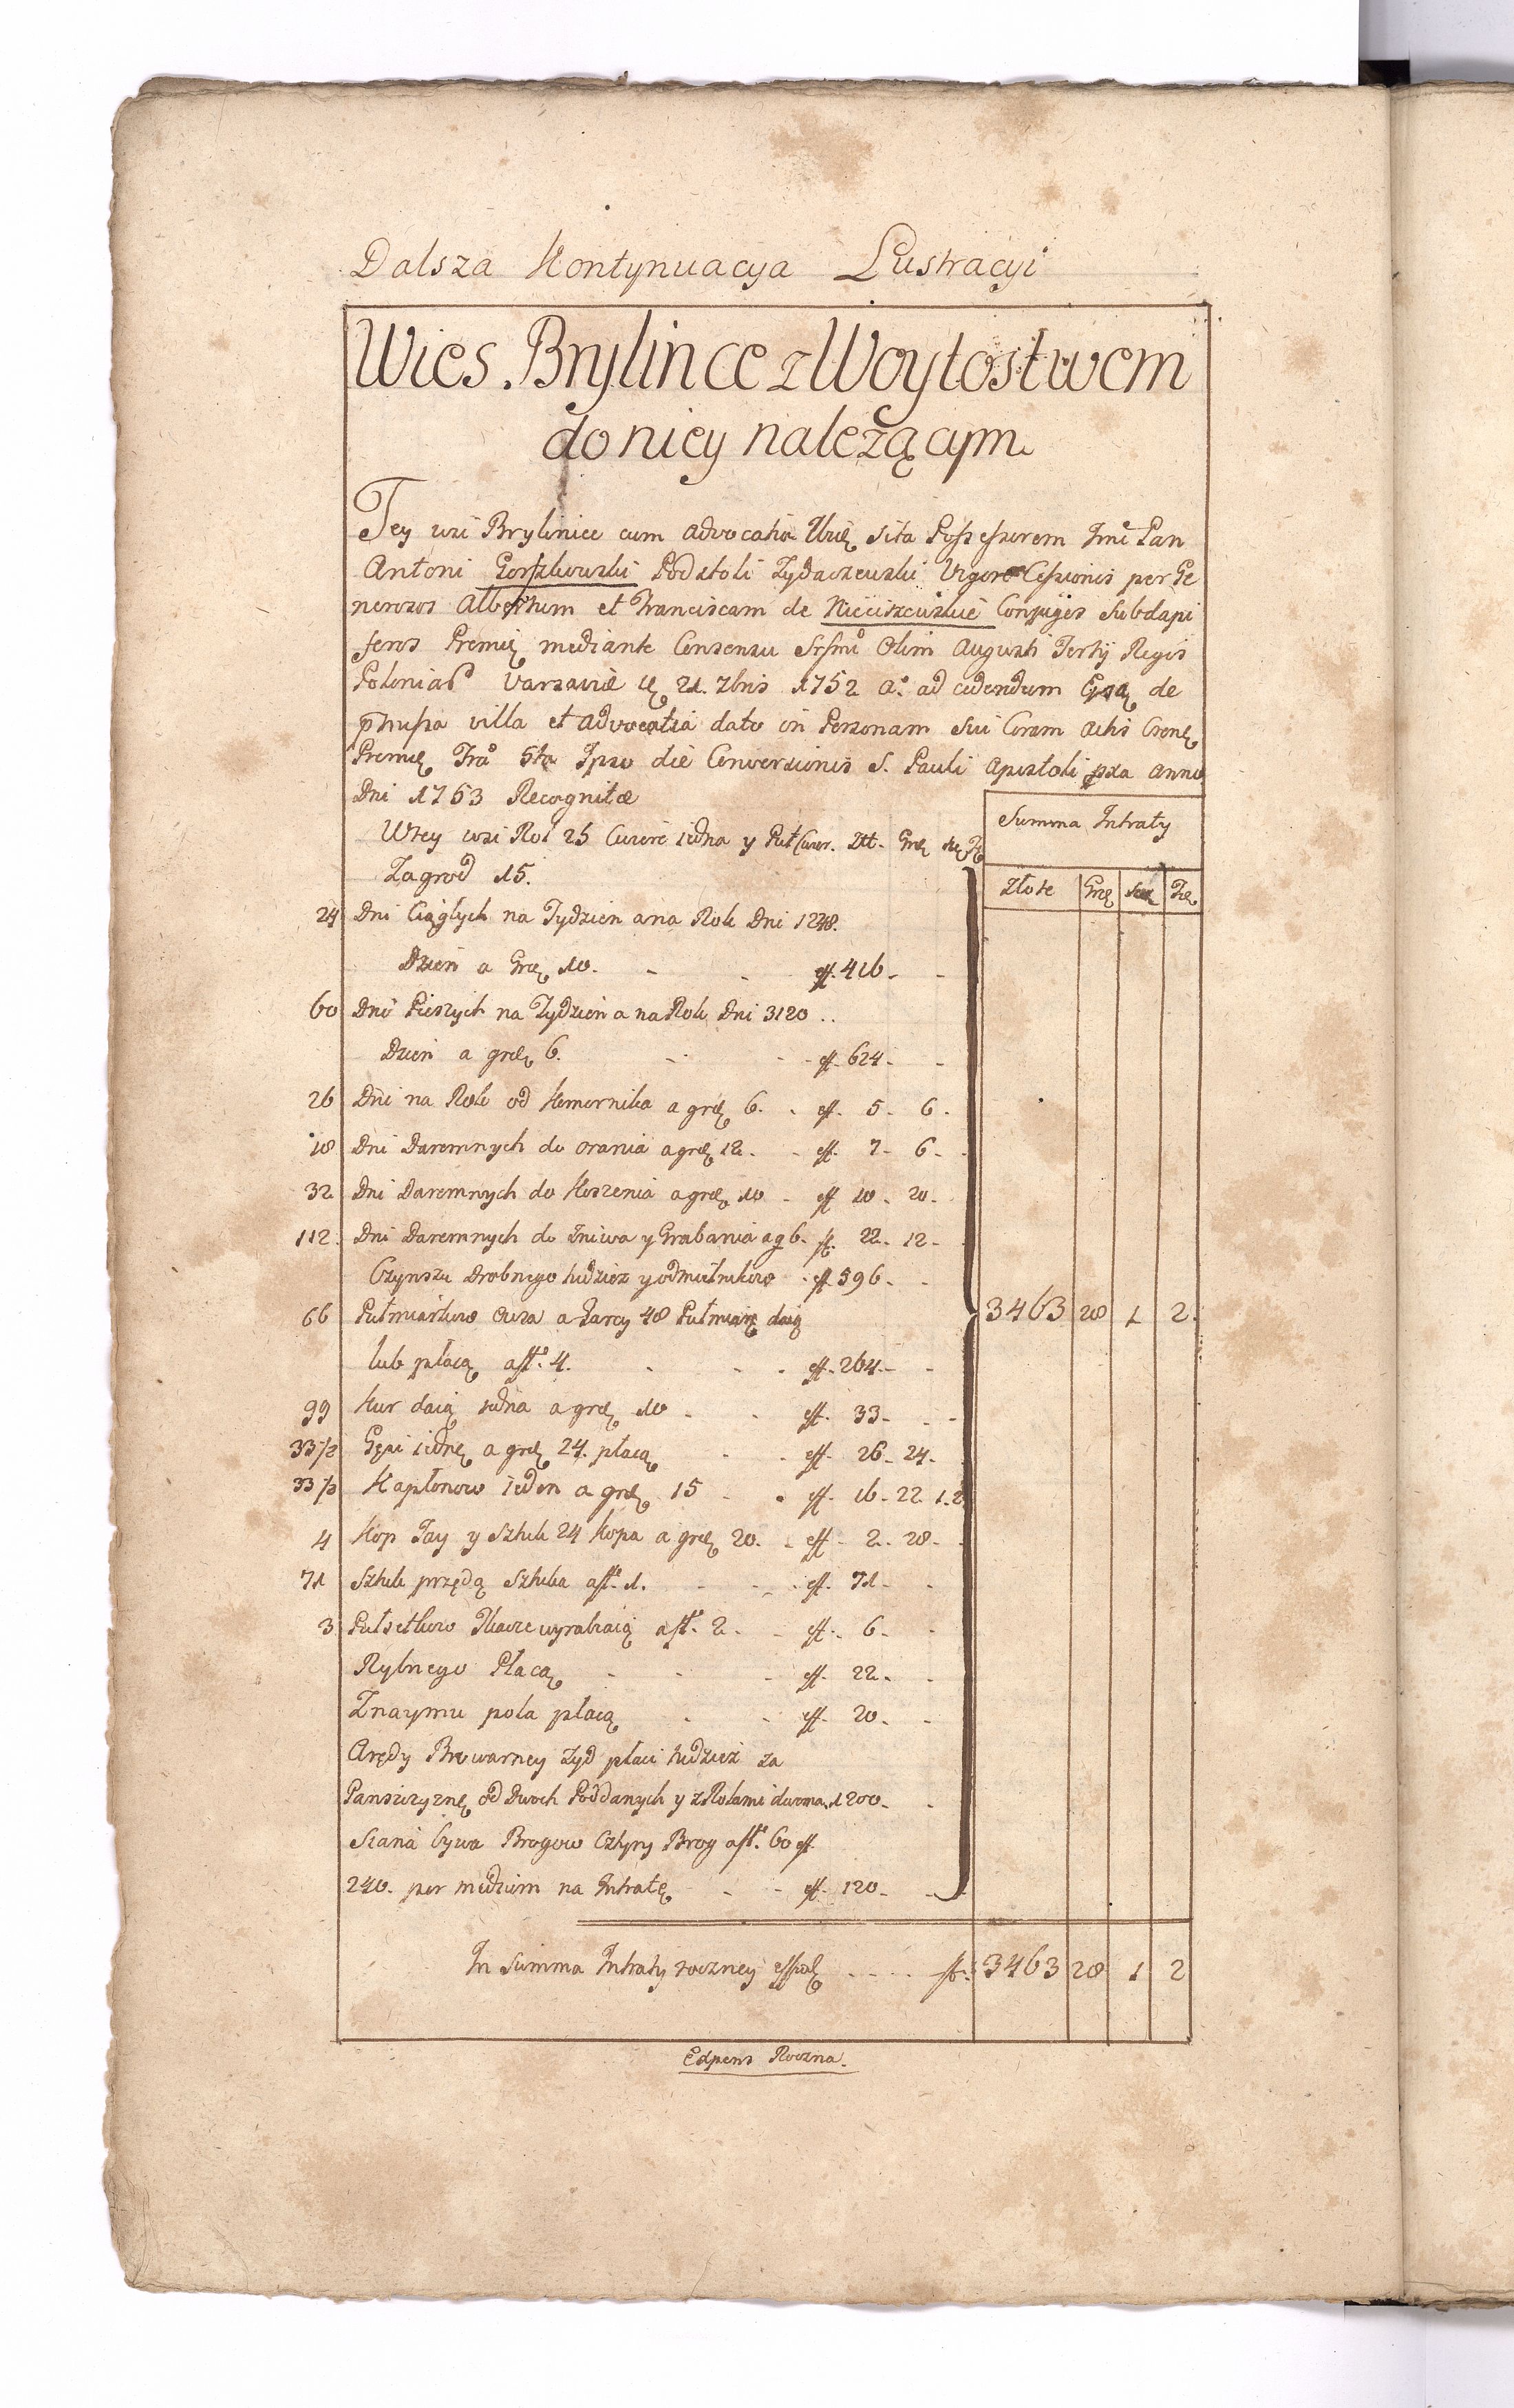 Dalsza Kontynuacya Lustracyi
Wies Brylince z Woytostwem
do niey należącym
Tey wsi Brylince cum advocatia Ibiȩ sita Possessorem Jmć Pan
Antoni Gorszkowski Podstoli Zydaczewski Vigore Cessionis per Ge
nerosos Albertum et Franciscam de Nieciszewskie Conjuges Subdapi
feros Premiȩ mediante Consensu Srsmi Olim Augusti Tertij Regis
Poloniar Varsaviæ 21. 7bris 1752 Ao ad cedendum de
villa et advocatia dato in Personam Sui Coram Actis
Premiȩ Ipso die Conversionis S. Pauli Apostoli anno
Dni 1753 Recognitæ
Wtey wsi Rol 25 Cwierć iedna y Puł Cwier. Ztt. Grȩ
Zagrod 15.
Summa Intraty
Złote Grȩ
24 Dni Ciągłych na Tydzien a na Rok Dni 1248.
Dzien a Grȩ 10. - - ff. 416 - -
60 Dni Pieszych na Tydzien a na Rok Dni 3120 ..
Dzien a grȩ 6. - - - ff. 624 - -
26 Dni na Rok od Komornika a grȩ 6. - ff. 5 - 6 -
18 Dni Daremnych do orania a grȩ 12 - - ff. 7 - 6 -
32 Dni Daremnych do Koszenia a grȩ 10 - ff 10 - 20 -
112. Dni Daremnych do Żniwa y Grabania a g 6 - ff. 22 - 12 -
Czynszu Drobnego tudziez y odmietnikow - ff. 596 - -
66 Pułmiarkow Owsa a Garcy 48 Pułmiarȩ daią 3463 28 1 2.
lub płacą a ff. 4. - - - ff. 264 - -
99 Kur daią iedna a grȩ 10 - - ff. 33 - - -
33 1/2 Gęsi iednȩ a grȩ 24. płacą - - ff. 26 - 24 -
33 1/2 Kapłonow ieden a grȩ 15 - - ff. 16 - 22 1. 2
4 Kop Jay y Sztuk 24 Kopa a grȩ 20. - ff - 2 - 28 -
71 Sztuk przędą Sztuka a ff. 1. - - - ff. 71 - -
3 Pułsetkow Tkacze wyrabiaią a ff. 2 - - ff. - 6 - -
Rybnego Płacą - - - ff. 22 - -
Z naymu pola płacą - - ff. 20 - -
Arędy Browarney Zyd płaci tudzież za
Panszczyznȩ od Dwoch Poddanych y z Rolami dwoma 1200 - -
Siana bywa Brogow Cztyry Brog a ff. 60 ff
240. per medium na Intratȩ - - ff. 120 - -
In Summa Intraty roczney - - - - ff. 3463 28 1 2
Expens Roczna.